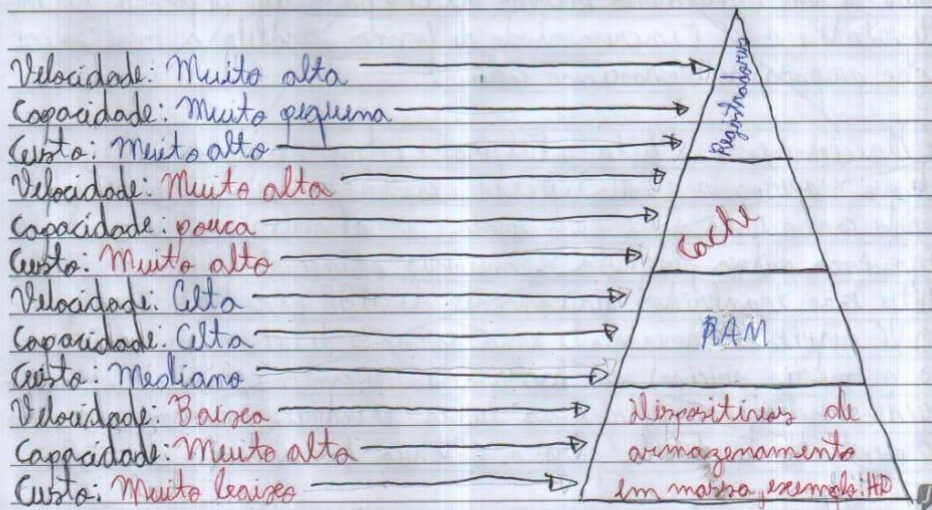 Velocidade: Muito alta
Capacidade: Muito pequena
Custo: Muito alto
Registradores
Velocidade: Muito alta
Capacidade: pouca
Custo: Muito alto
Cache
Velocidade: Alta
Capacidade: Alta
Custo: Mediano
RAM
Velocidade: Baixa
Capacidade: Muito alta
Custo: Muito baixo
Dispositivos de
armazenamento
em massa, exemplo: HD